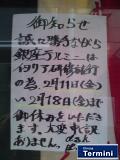 御知らせ
誠に勝手ながら
銀座テルミニーは
イタリア研修旅行
の為、2月11日(金)
〜2月18日(金)まで
御休みをいただき
ます。大変申し訳
ありません。
Termini